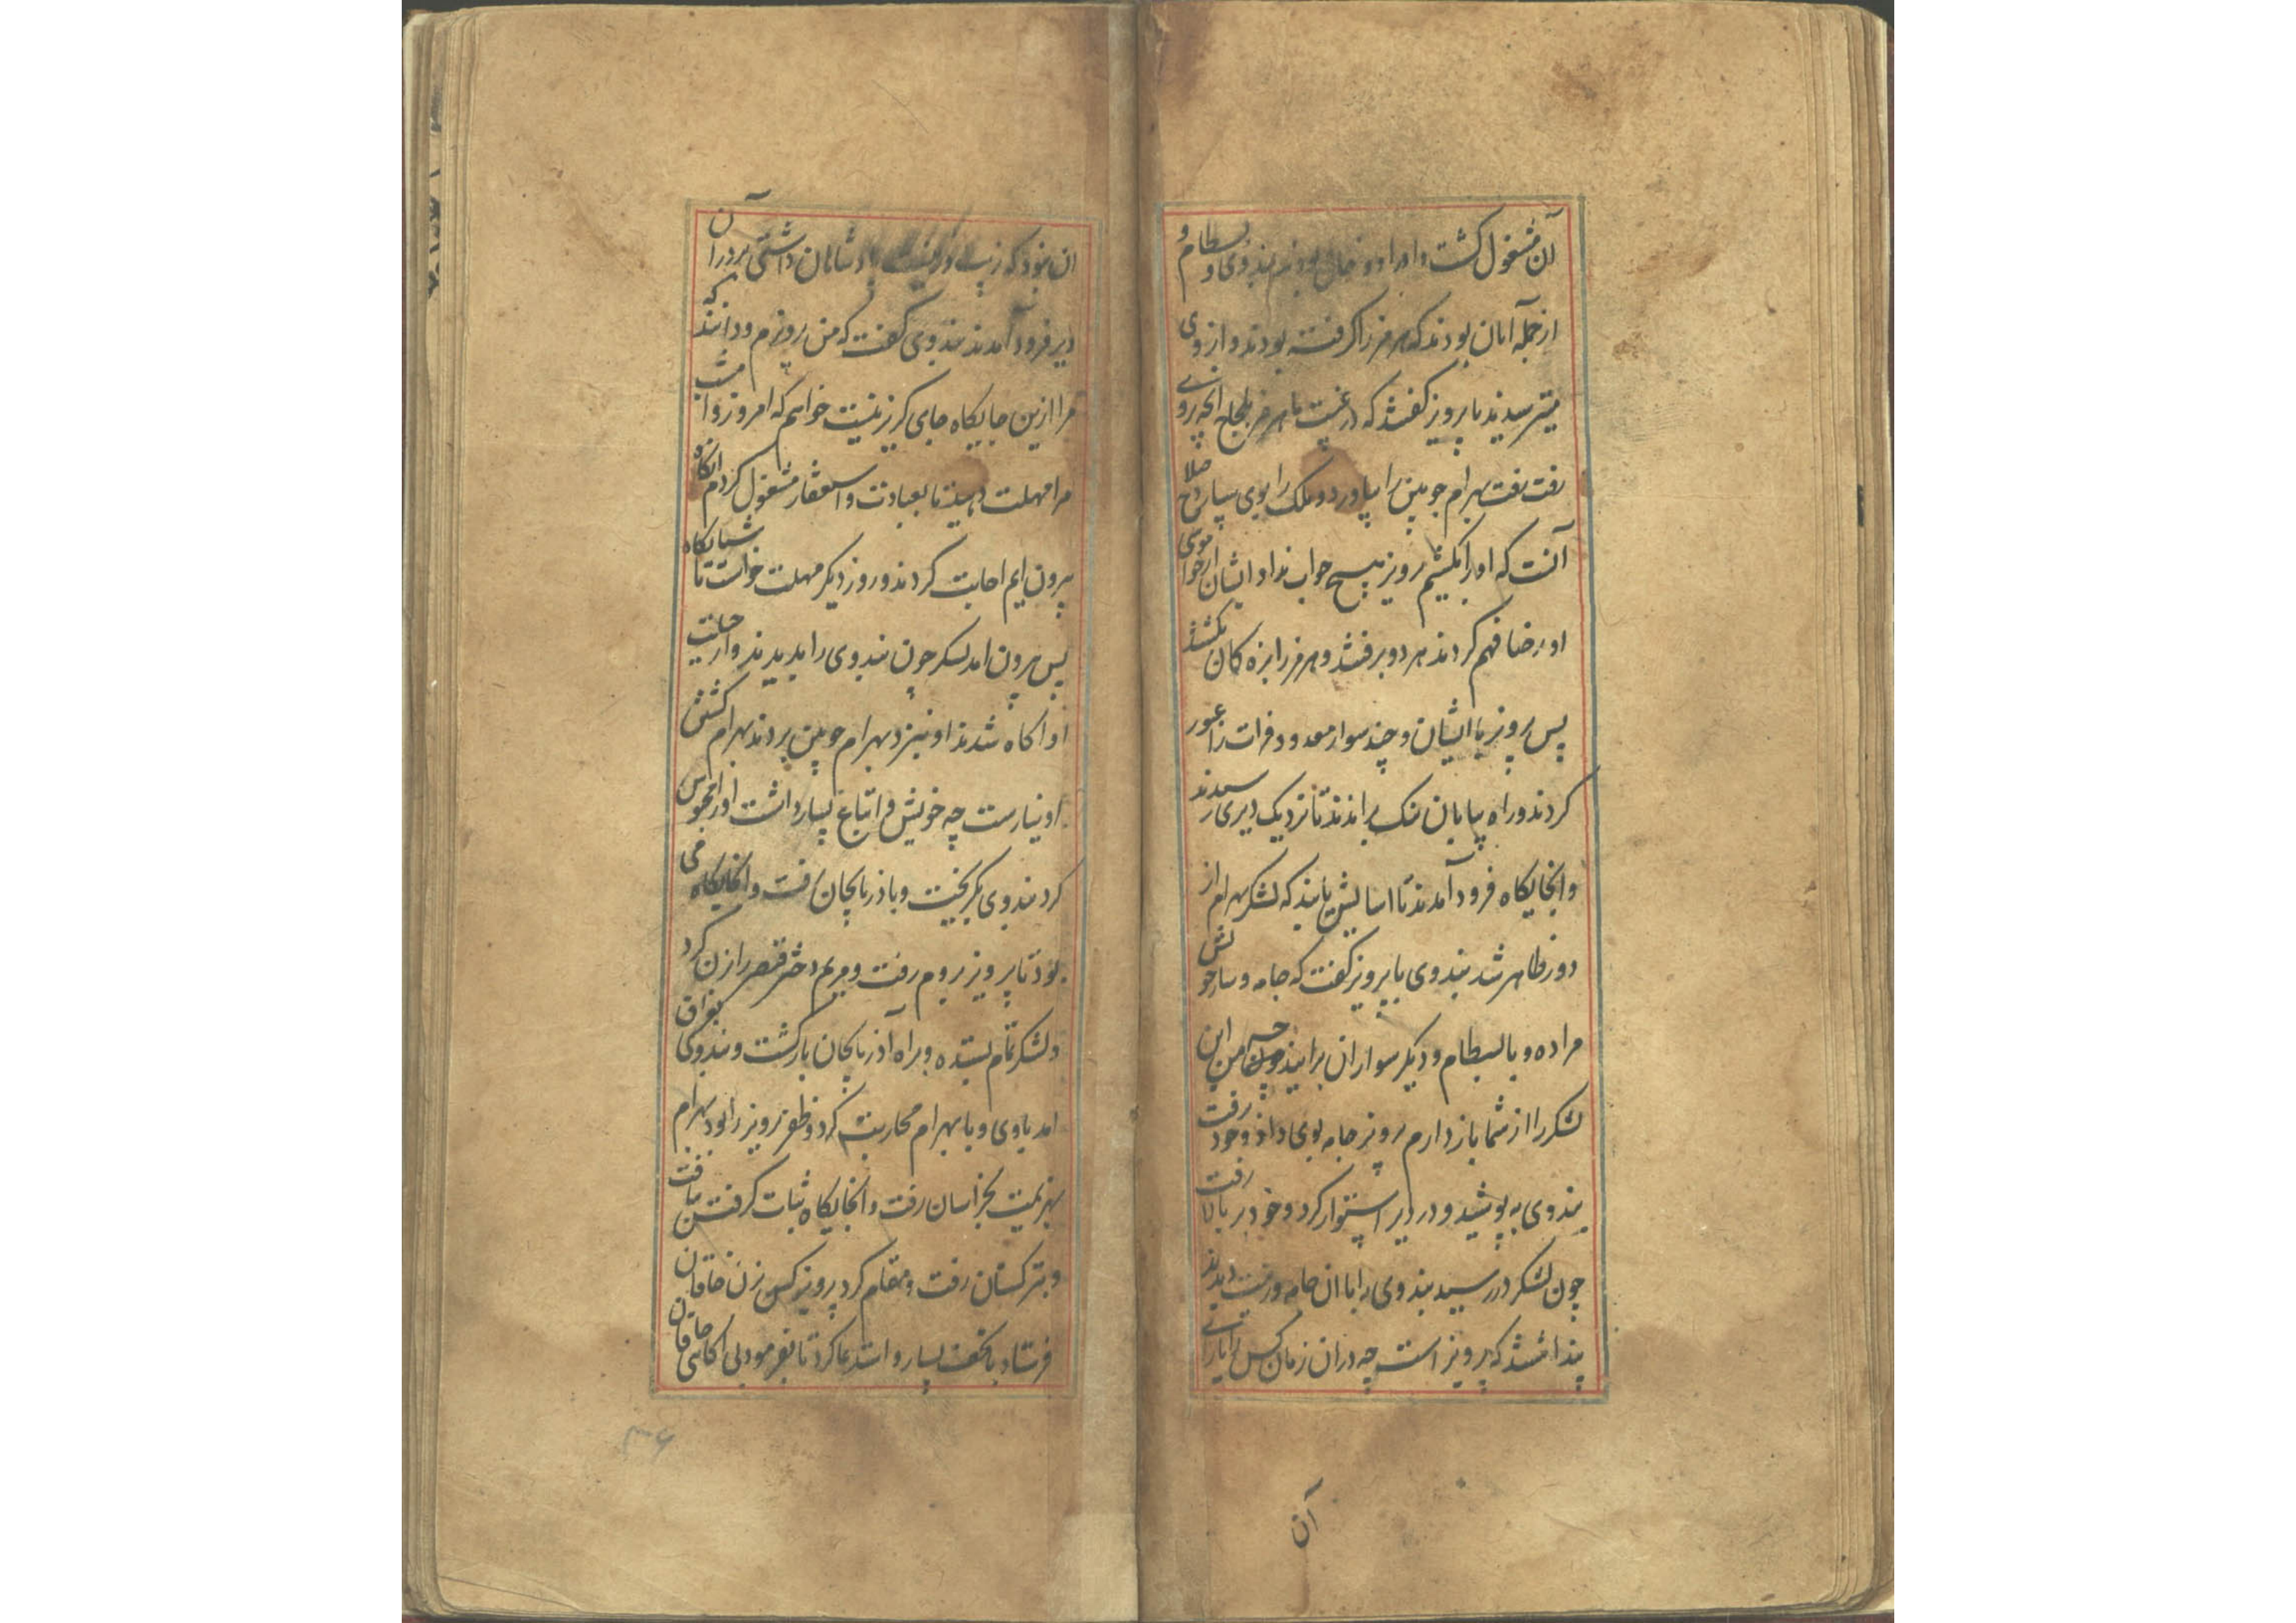 آن مشغول گشت و او را دو خال بودند بندوی و بسطام و
از جمله آنان بودند که هرمز را گرفته بودند و از وی
میترسیدند با پرویز گفتند که در غیبت ما هرمز بلجاج انچه بروی
رفت رفت بهرام جوبین را بیاورد و ملک را بوی سپارد صلاح
آنست که او را بکشیم پرویز هیچ جواب نداد ایشان از خواموشی
او رضا فهم کردند هر دو برفتند و هرمز را بزه کمان بکشتند
پس پرویز با ایشان و چند سوار معدود فرات را عبور
کردند و راه بیابان براندند تا نزدیک دیری رسیدند
و انجایکاه فرود آمدند تا اسایش یابند که لشکر بهرام از
دور ظاهر شد بندوی با پرویز گفت که جامه و ساز خویش
مرا ده و با بسطام و دیگر سواران برانید من این
لشکر را از شما باز دارم پرویز جامه بوی داد و خود رفت
بندوی به پوشید و در دیر استوار کرد و خود بر بالا رفت
چون لشکر در رسید بندوی را با ان جامه و زینت دیدند
پنداشتند که پرویز است چه دران زمان کس را یارای
آن
ان نبود که زی و زینت پادشاهان داشتی بر در آن
دیر فرود آمدند بندوی گفت که من پرویزم و دانید که
مرا ازین جایگاه جای گریز نیست خواهم که امروز و امشب
مرا مهلت دهید تا بعبادت و استغفار مشغول گردم انگاه
بیرون ایم اجابت کردند و روز دیگر مهلت خواست تا شبانگاه
پس بیرون امد لشکر چون بندوی را بدیدند و از حیلت
او اگاه شدند او نبزد بهرام جوبین بردند بهرام کشتن
او نیارست چه خویش و اتباع بسیار داشت او را محبوس
کرد بندوی بگریخت و باذربایجان رفت و انجایگاه می
بود تا پرویز بروم رفت و مریم دختر قیصر را زن کرد
و لشکر تمام بستده و براه آذربایجان بازگشت بعراق و بندوی
امد باوی و با بهرام محاربت کرد و ظفر پرویز را بود بهرام
بهزیمت بخراسان رفت و انجایگاه ثبات گرفتن نیافت
و بترکستان رفت و مقام کرد پرویز کس بزن خاقان
فرستاد با تحف بسیار و استدعا کرد تا بفرمود بی اگاهی خاقان
۳۶